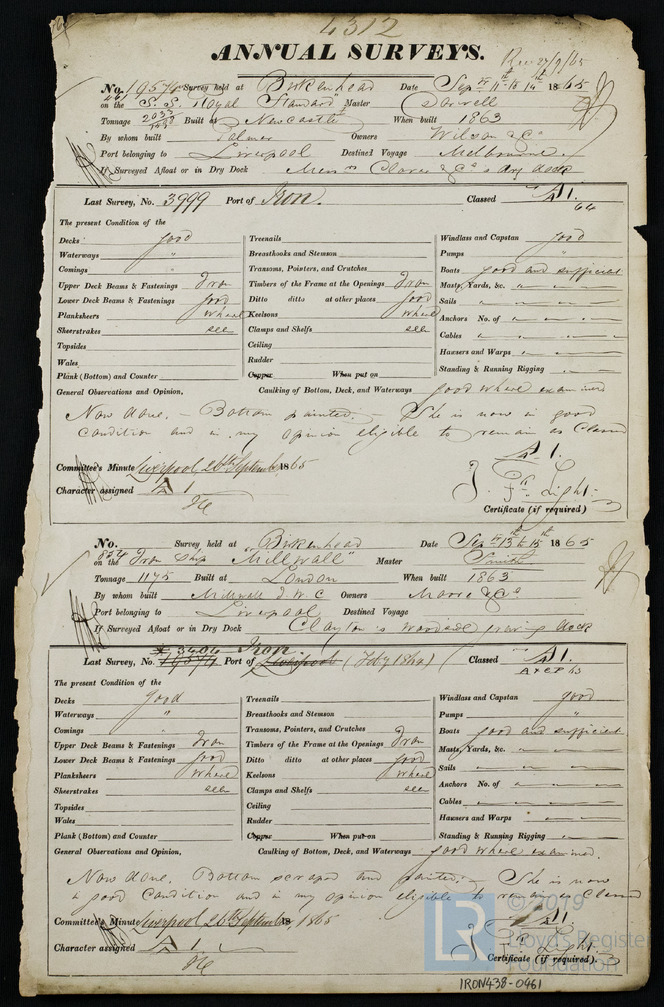 4312
ANNUAL SURVEYS.
No. 19574 Survey held at Birkenhead Date Sep 1865
on the S.S. Royal Standard Master
Tonnage 2033 Built at Newcastle When built 1863
By whom built Palmer Owners Wilson & Co
Port belonging to Liverpool Destined Voyage Melbourne
If Surveyed Afloat or in Dry Dock Mess Clover & Co's dry dock
Last Survey, No. 3999 Port of Iron. Classed A1.
64
The present Condition of the
Decks good Treenails Windlass and Capstan good
Waterways " Breasthooks and Stemson Pumps "
Comings Transoms, Pointers, and Crutches Boats good and sufficient
Upper Deck Beams & Fastenings Iron Timbers of the Frame at the Openings Iron Masts, Yards, &c. "
Lower Deck Beams & Fastenings good Ditto ditto at other places good Sails "
Planksheers where Keelsons where Anchors No. of "
Sheerstrakes seen Clamps and Shelfs seen Cables "
Topsides Ceiling Hawsers and Warps "
Wales Rudder Standing & Running Rigging "
Plank (Bottom) and Counter Copper When put on
General Observations and Opinion. Caulking of Bottom, Deck, and Waterways good where examined
Now done. - Bottom painted. - She is now in good
condition and in my opinion eligible to remain as Classed
A1.
Committee's Minute Liverpool 26th September 1865
Character assigned A1 Light
Certificate (if required)
No. Survey held at Birkenhead Date Sep 13th 15th 1865
on the Iron Ship "Millwall" Master Smith
Tonnage 1175 Built at London When built 1863
By whom built Millwall I W C Owners Moore & Co
Port belonging to Liverpool Destined Voyage
If Surveyed Afloat or in Dry Dock Clayton's Woodside graving dock
Iron.
Last Survey, No. Port of Liverpool (Feby 1864) Classed A1.
The present Condition of the
Decks good Treenails Windlass and Capstan good
Waterways " Breasthooks and Stemson Pumps "
Comings Transoms, Pointers, and Crutches Boats good and sufficient
Upper Deck Beams & Fastenings Iron Timbers of the Frame at the Openings Iron Masts, Yards, &c. "
Lower Deck Beams & Fastenings good Ditto ditto at other places good Sails "
Planksheers where Keelsons where Anchors No. of "
Sheerstrakes seen Clamps and Shelfs seen Cables "
Topsides Ceiling Hawsers and Warps "
Wales Rudder Standing & Running Rigging "
Plank (Bottom) and Counter Copper When put on
General Observations and Opinion. Caulking of Bottom, Deck, and Waterways good where examined.
Now done. Bottom scraped and painted. - She is now
in good condition and in my opinion eligible to remain as Classed
A1.
Committee's Minute Liverpool 26th September 1865
Character assigned A1 Light
Certificate (if required)
LR © 2019
Lloyd's Register
Foundation
IRON438-0461